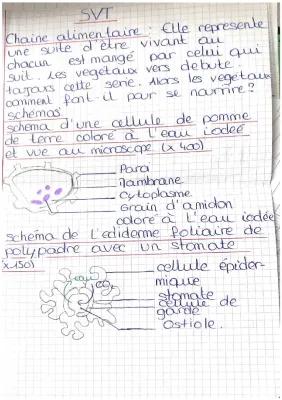 SVT
Chaine alimentaire : Elle represente
une suite d'être vivant au
chacun est mangé par celui qui
suit. Les vegetaux vers debute
toujours cette série. Alors les vegetaux
comment font-il pour se nourrire?
schémas
schéma d'une cellule de pomme
de terre coloré à l'eau iodée
et vue au microscope (x 400)
Paroi
Membrane
Cytoplasme
Grain d'amidon
coloré à l'eau iodée
schéma de l'épiderme foliaire de
polypodre avec un stomate
(x150)
eau
cellule épider-
mique
stomate
cellule de
garde
Ostiole.